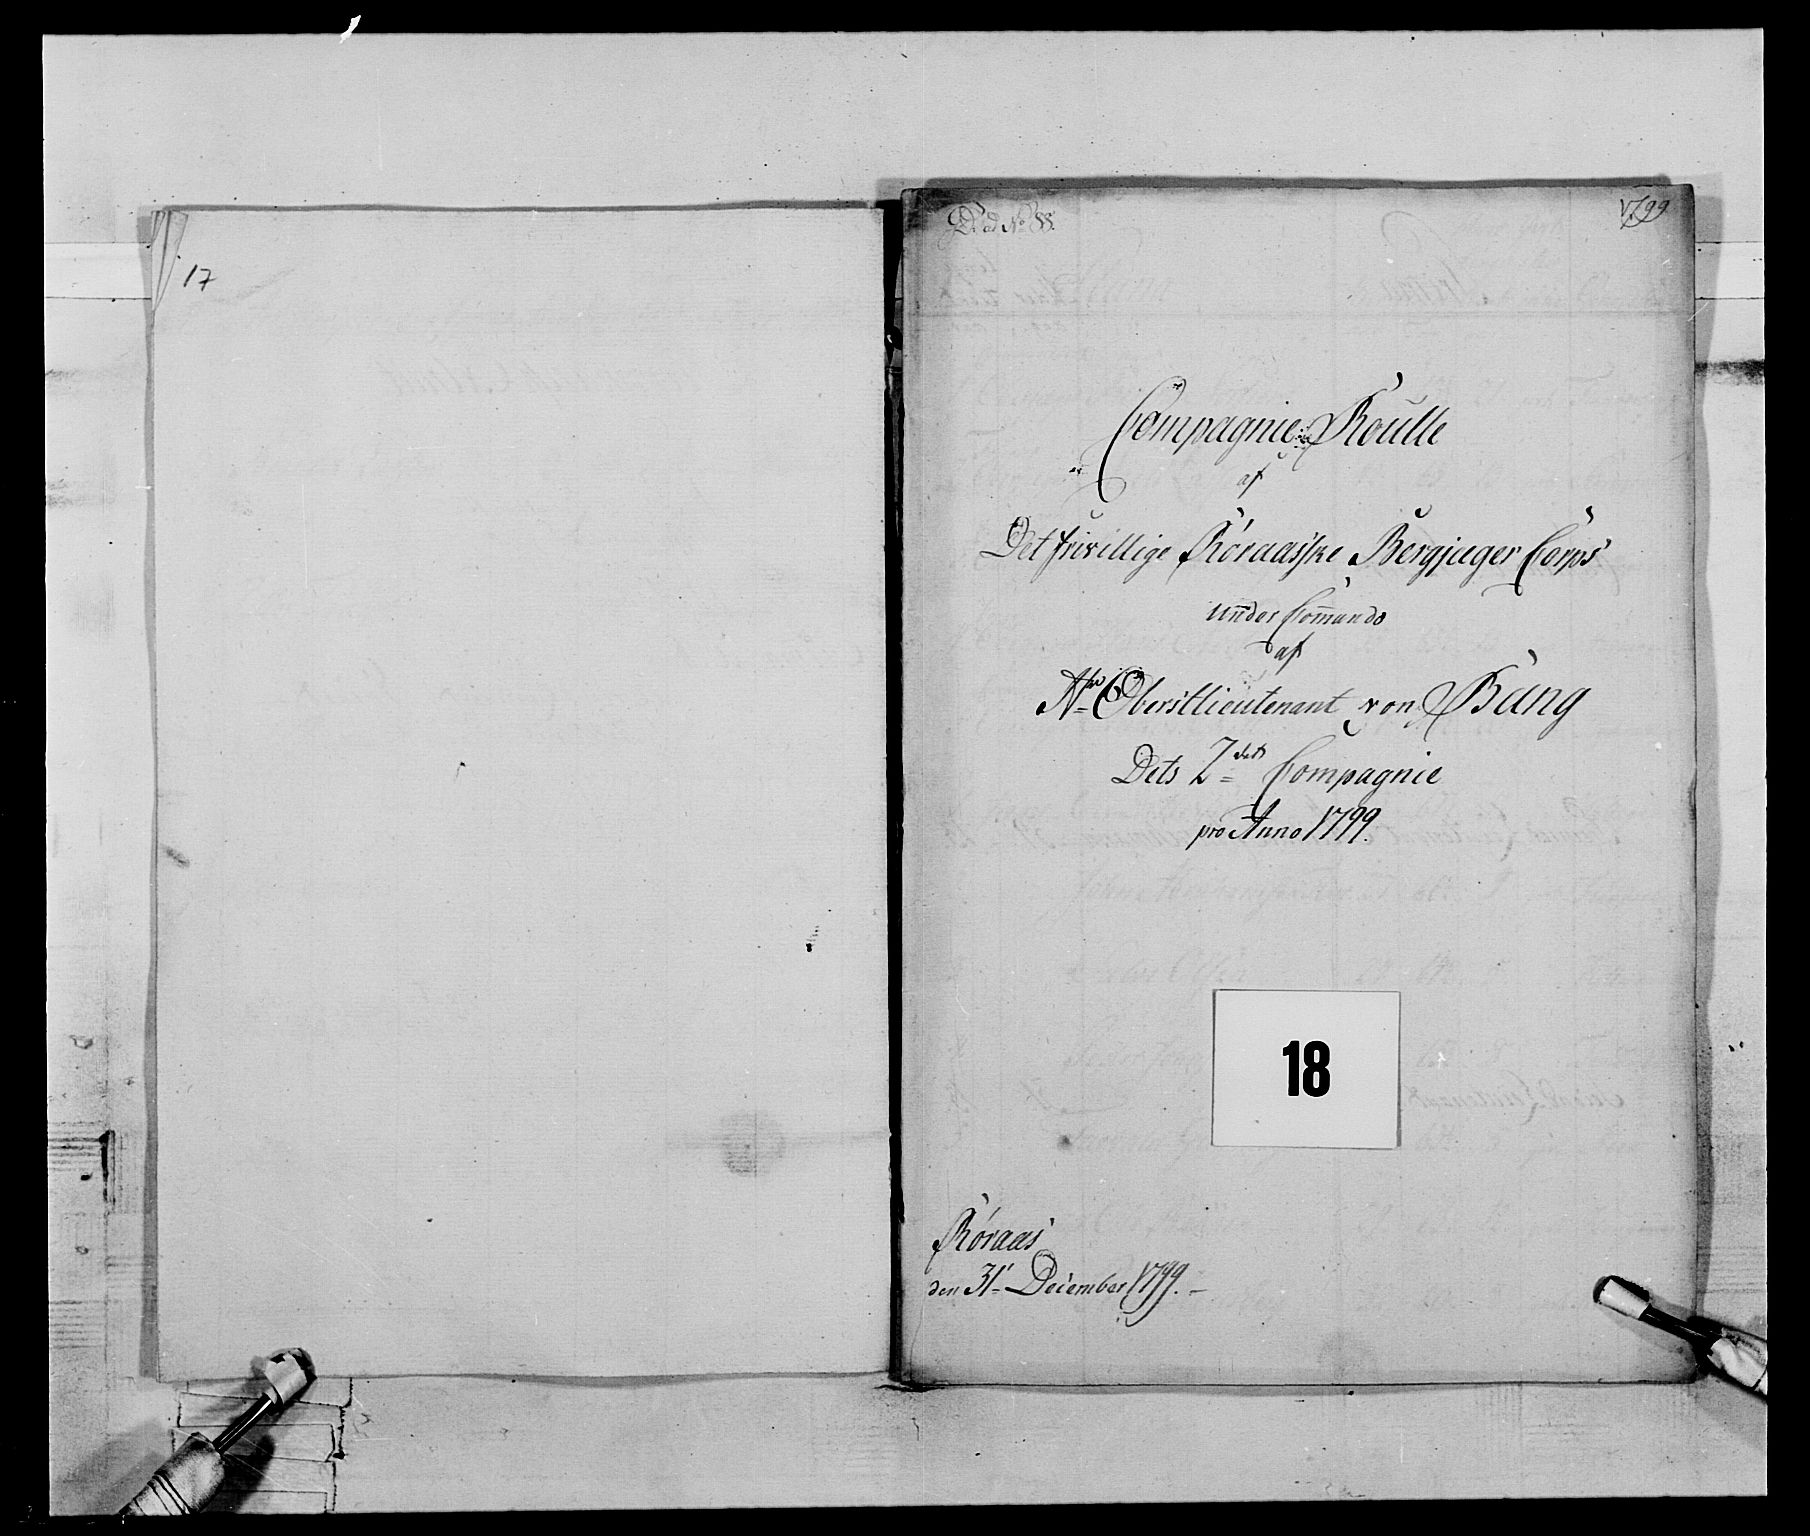 17
D. ad No 88.
1799
Compagnie Roulle
af
Det frivillige Röraasske Bergjæger Corps
under Com̄ando
af
Hr Oberstlieutenant von Bang
Dets 2det Compagnie
pro Anno 1799.
18
Röraas
den 31- December 1799.-